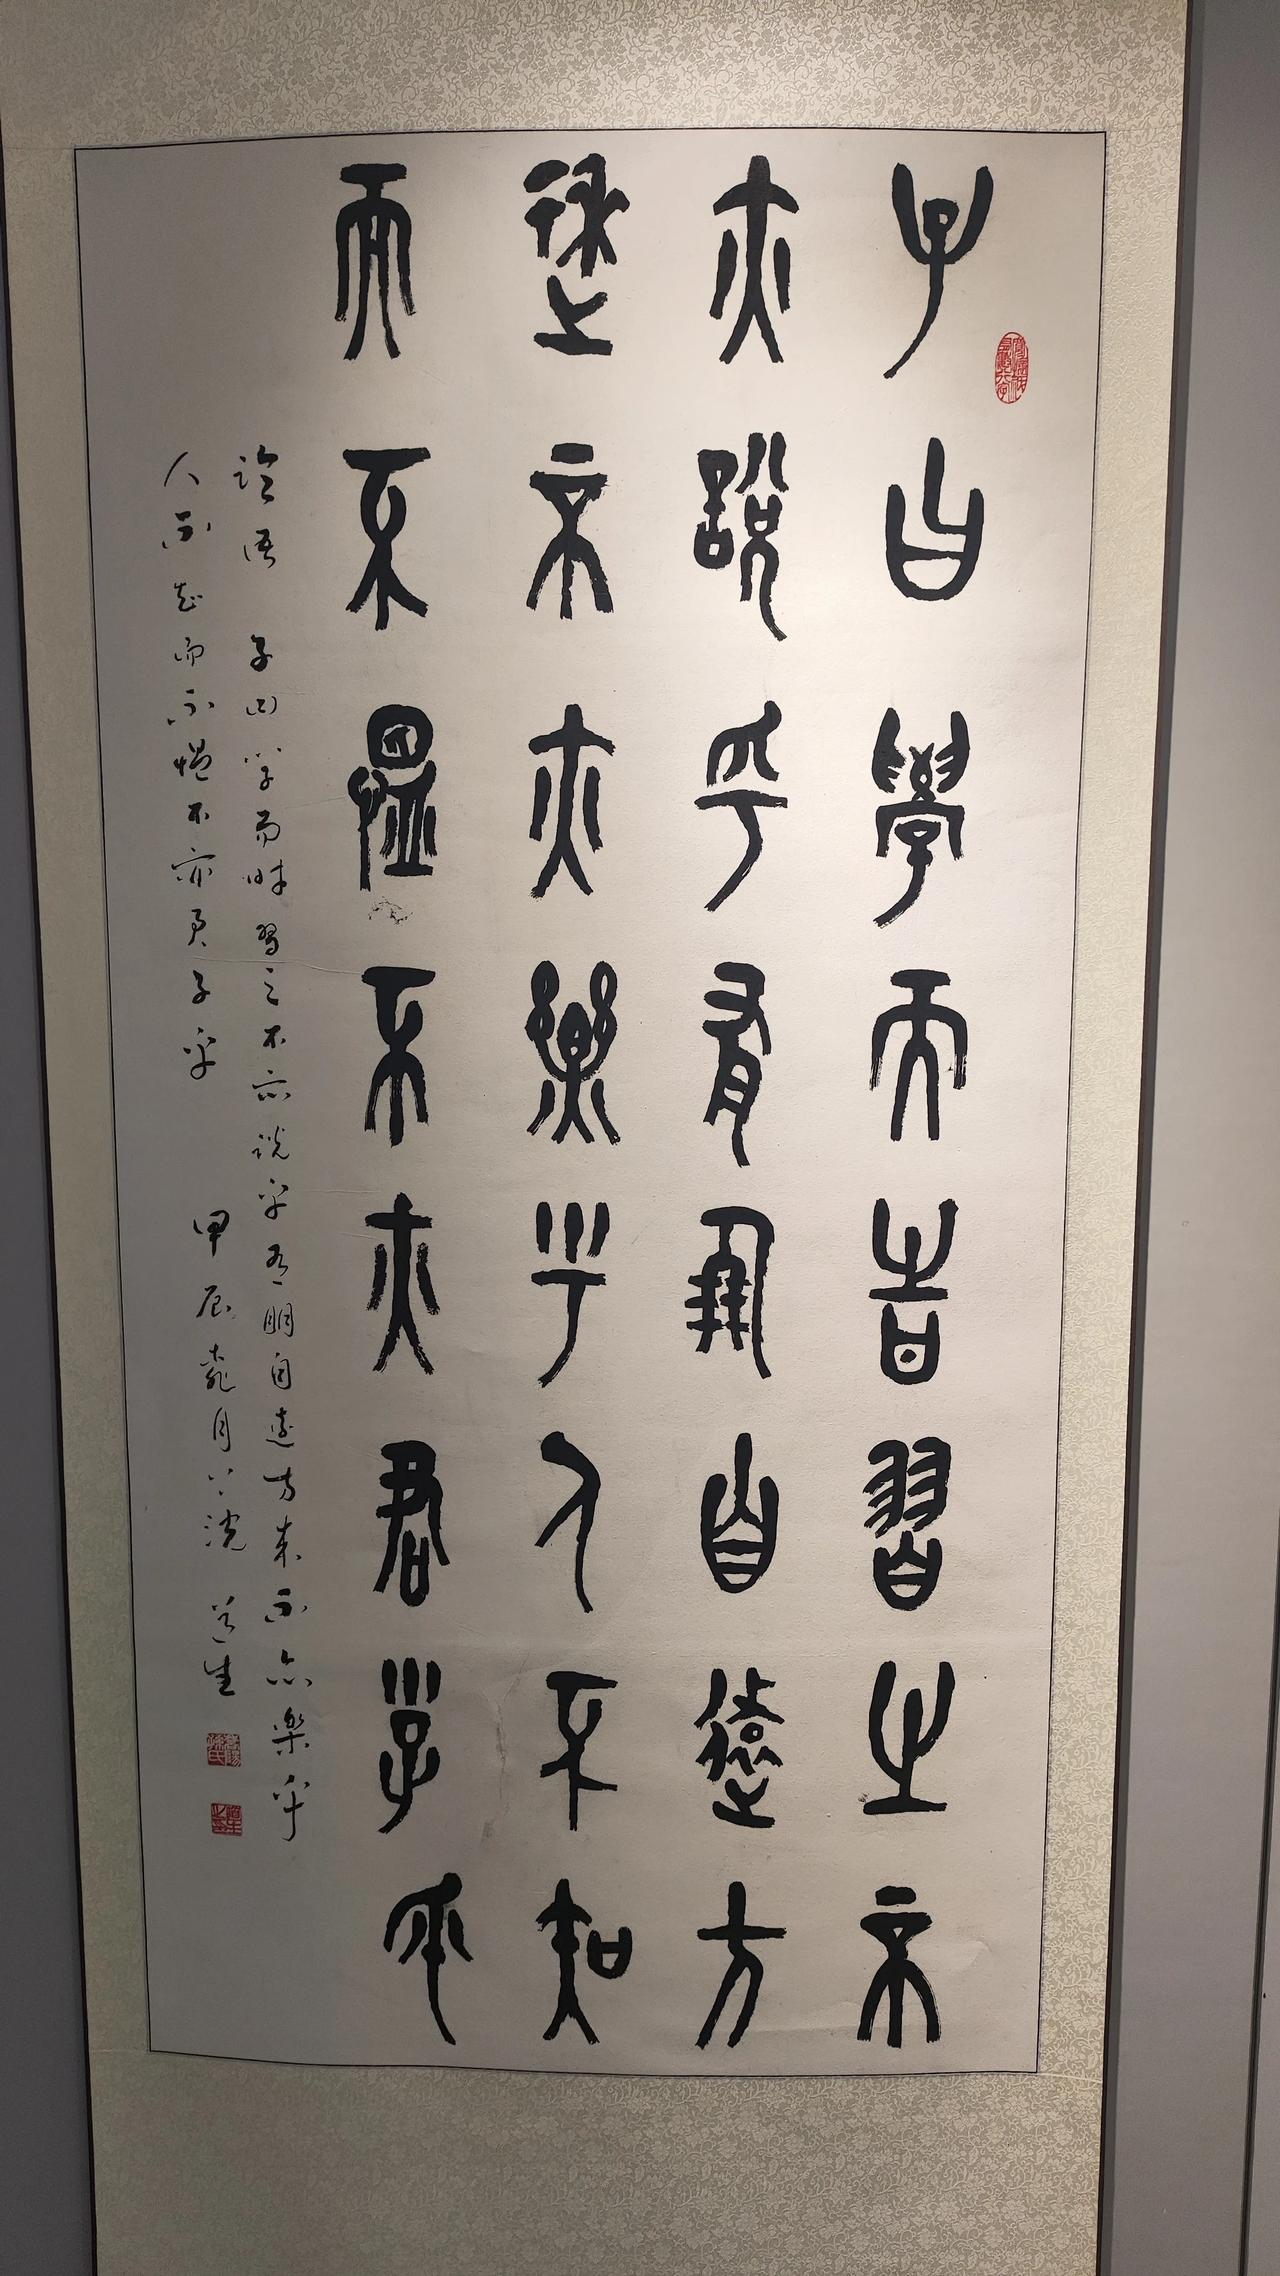 子曰學而時習之不
亦說乎有朋自遠方
來不亦樂乎人不知
而不慍不亦君子乎
論語 子曰學而時習之不亦說乎有朋自遠方來不亦樂乎
人不知而不慍不亦君子乎 甲辰龍月 道生